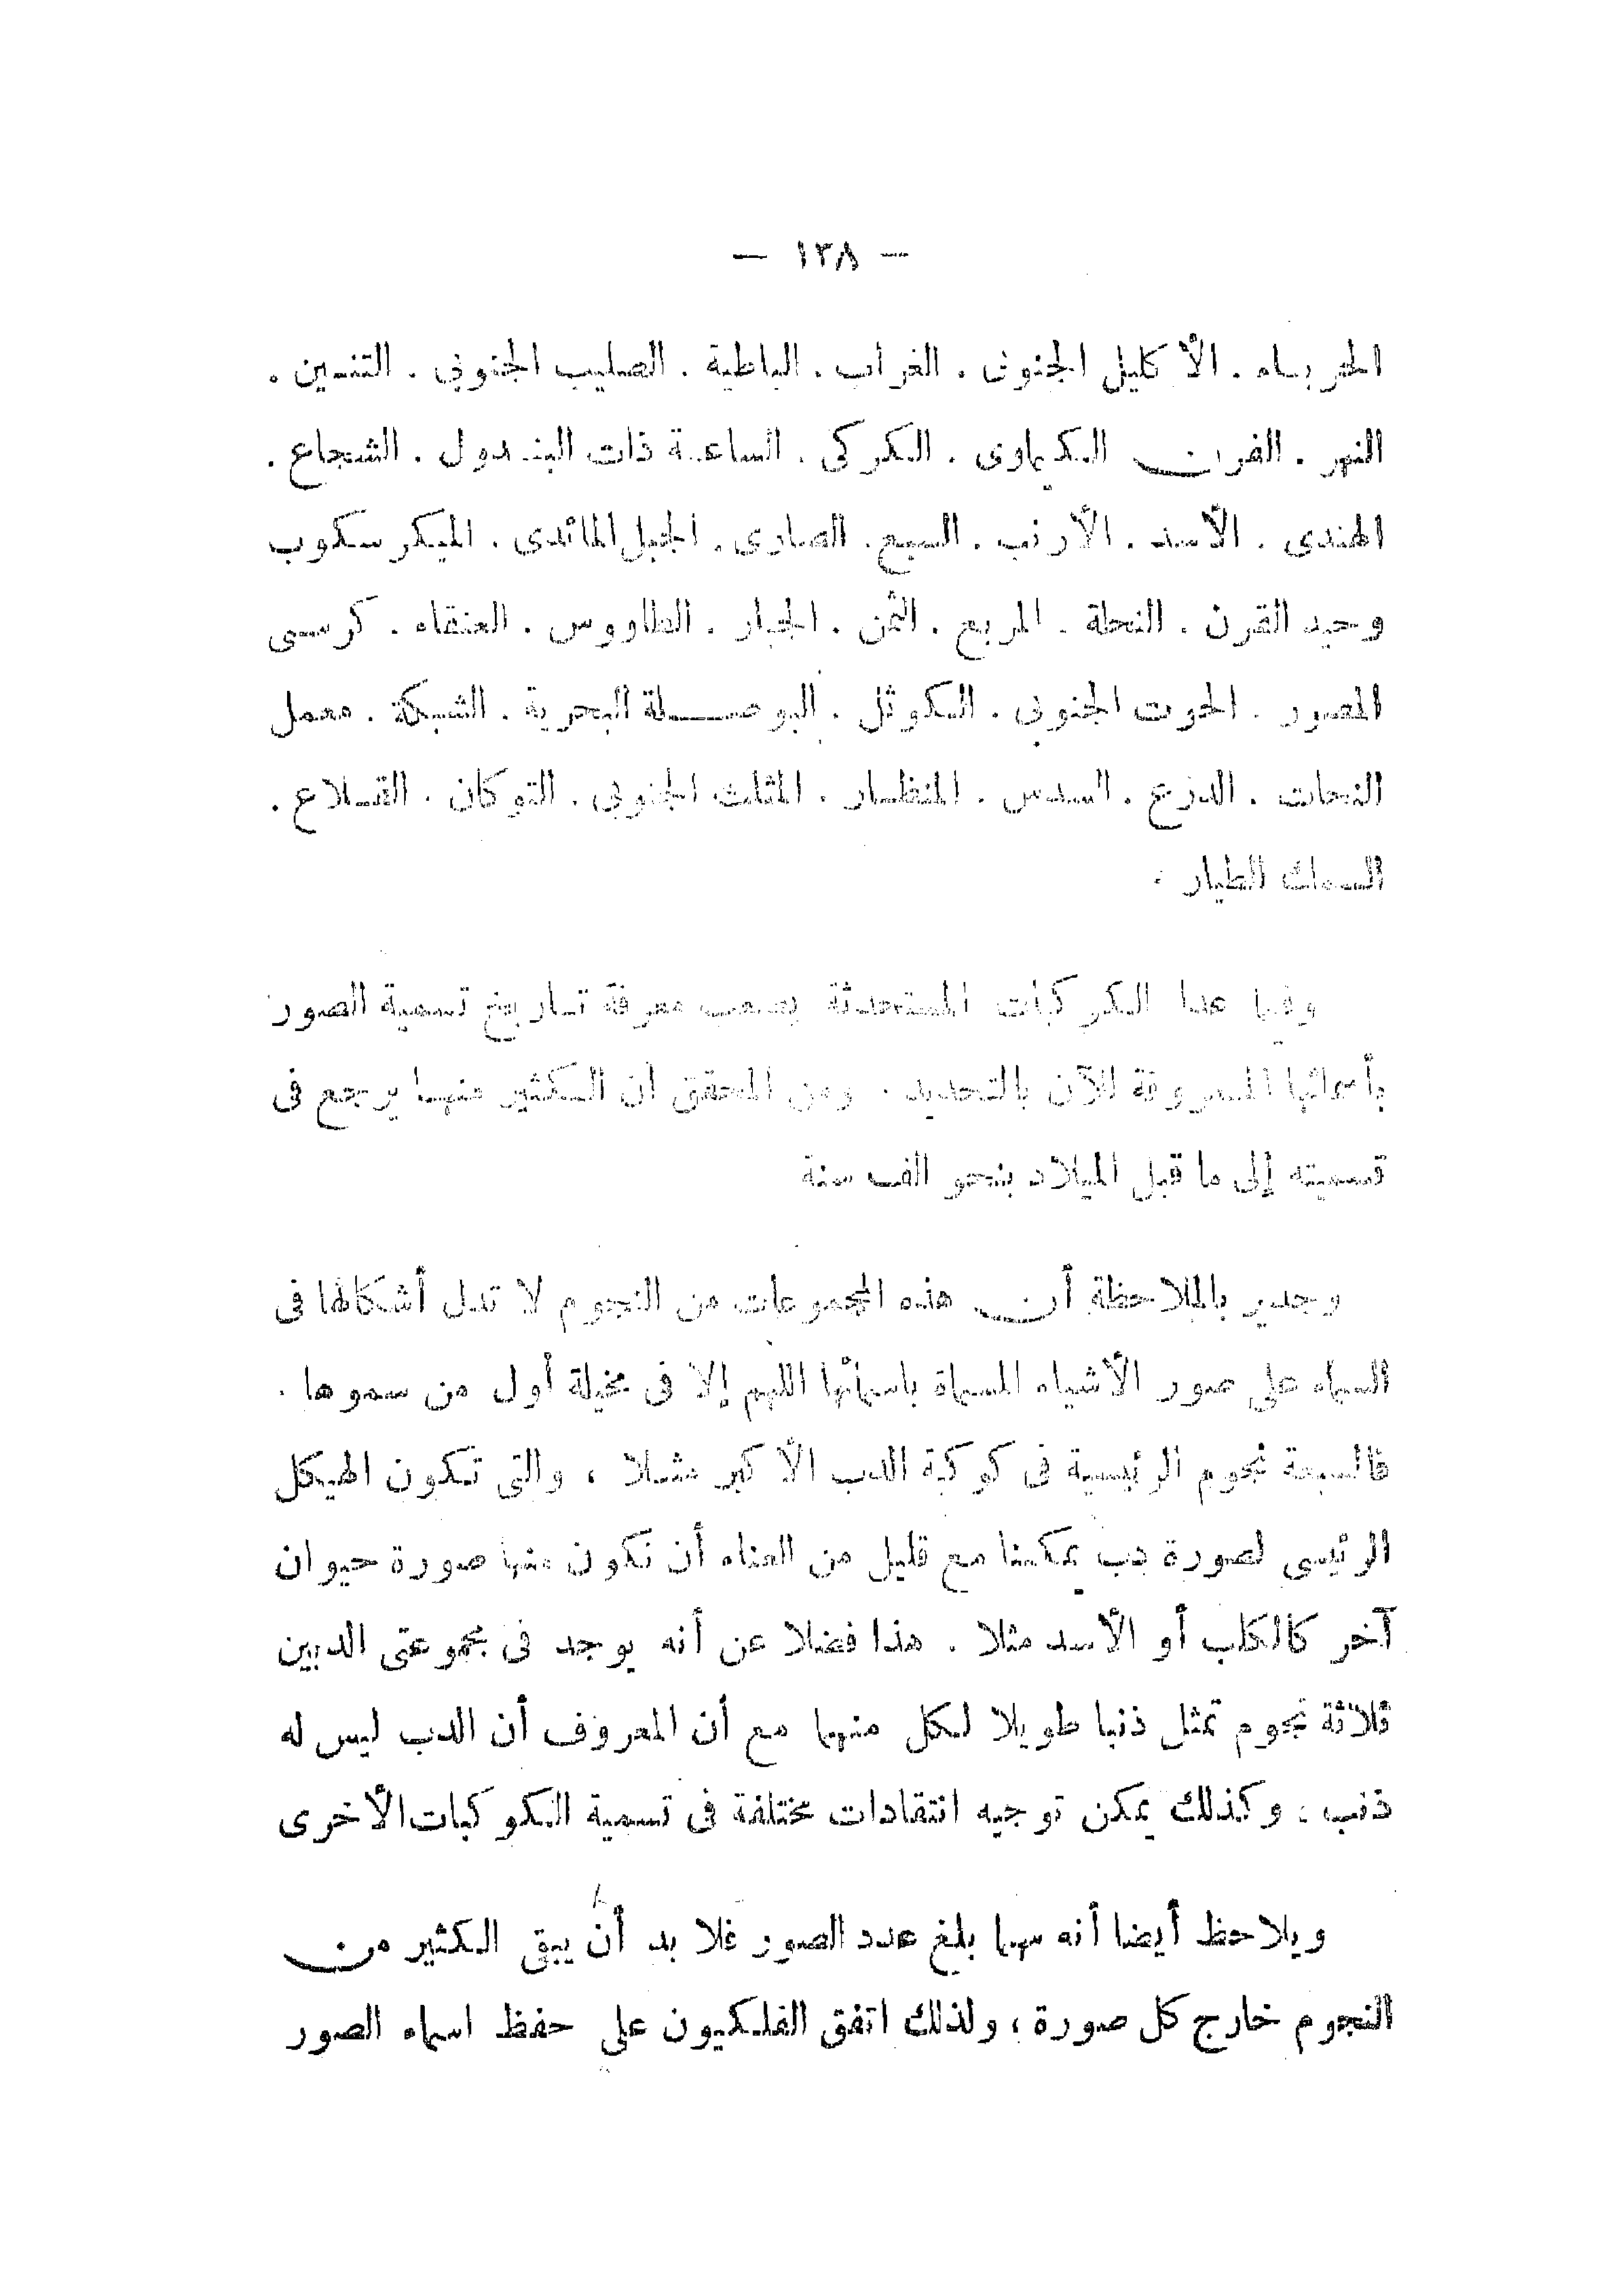 — ١٣٨ —
الحرباء . الأكليل الجنوبى . الغراب . الباطية . الصليب الجنوبى . التنين .
النهر . الفرن الكيماوى . الكركى . الساعة ذات البندول . الشجاع .
الهندى . الأسد . الأرنب . السبع . الصارى . الجبل المائدى . الميكرسكوب
وحيد القرن . النحلة . المربع . الثمن . الجبار . الطاووس . العنقاء . كرسى
المصور . الحوت الجنوبى . الكوثل . البوصلة البحرية . الشبكة . معمل
النحات . الدرع . السدس . المنظار . المثلث الجنوبى . التوكان . القلاع .
السمك الطيار .
وفيما عدا الكوكبات المستحدثة يصعب معرفة تاريخ تسمية الصور
بأسمائها المعروفة للآن بالتحديد . ومن المحقق أن الكثير منها يرجع فى
تسميته إلى ما قبل الميلاد بنحو الف سنة
وجدير بالملاحظة أن هذه المجموعات من النجوم لا تدل أشكالها فى
السماء على صور الأشياء المسماة باسمائها اللهم إلا فى مخيلة أول من سموها .
فالسبعة نجوم الرئيسية فى كوكبة الدب الأكبر مثلا ، والتى تكون الهيكل
الرئيسى لصورة دب يمكننا مع قليل من العناء أن نكون منها صورة حيوان
آخر كالكلب أو الأسد مثلا . هذا فضلا عن أنه يوجد فى مجموعتى الدبين
ثلاثة نجوم تمثل ذنبا طويلا لكل منهما مع أن المعروف أن الدب ليس له
ذنب ، وكذلك يمكن توجيه انتقادات مختلفة فى تسمية الكوكبات الأخرى
ويلاحظ أيضا أنه مهما بلغ عدد الصور فلا بد أن يبقى الكثير من
النجوم خارج كل صورة ، ولذلك اتفق الفلكيون على حفظ اسماء الصور